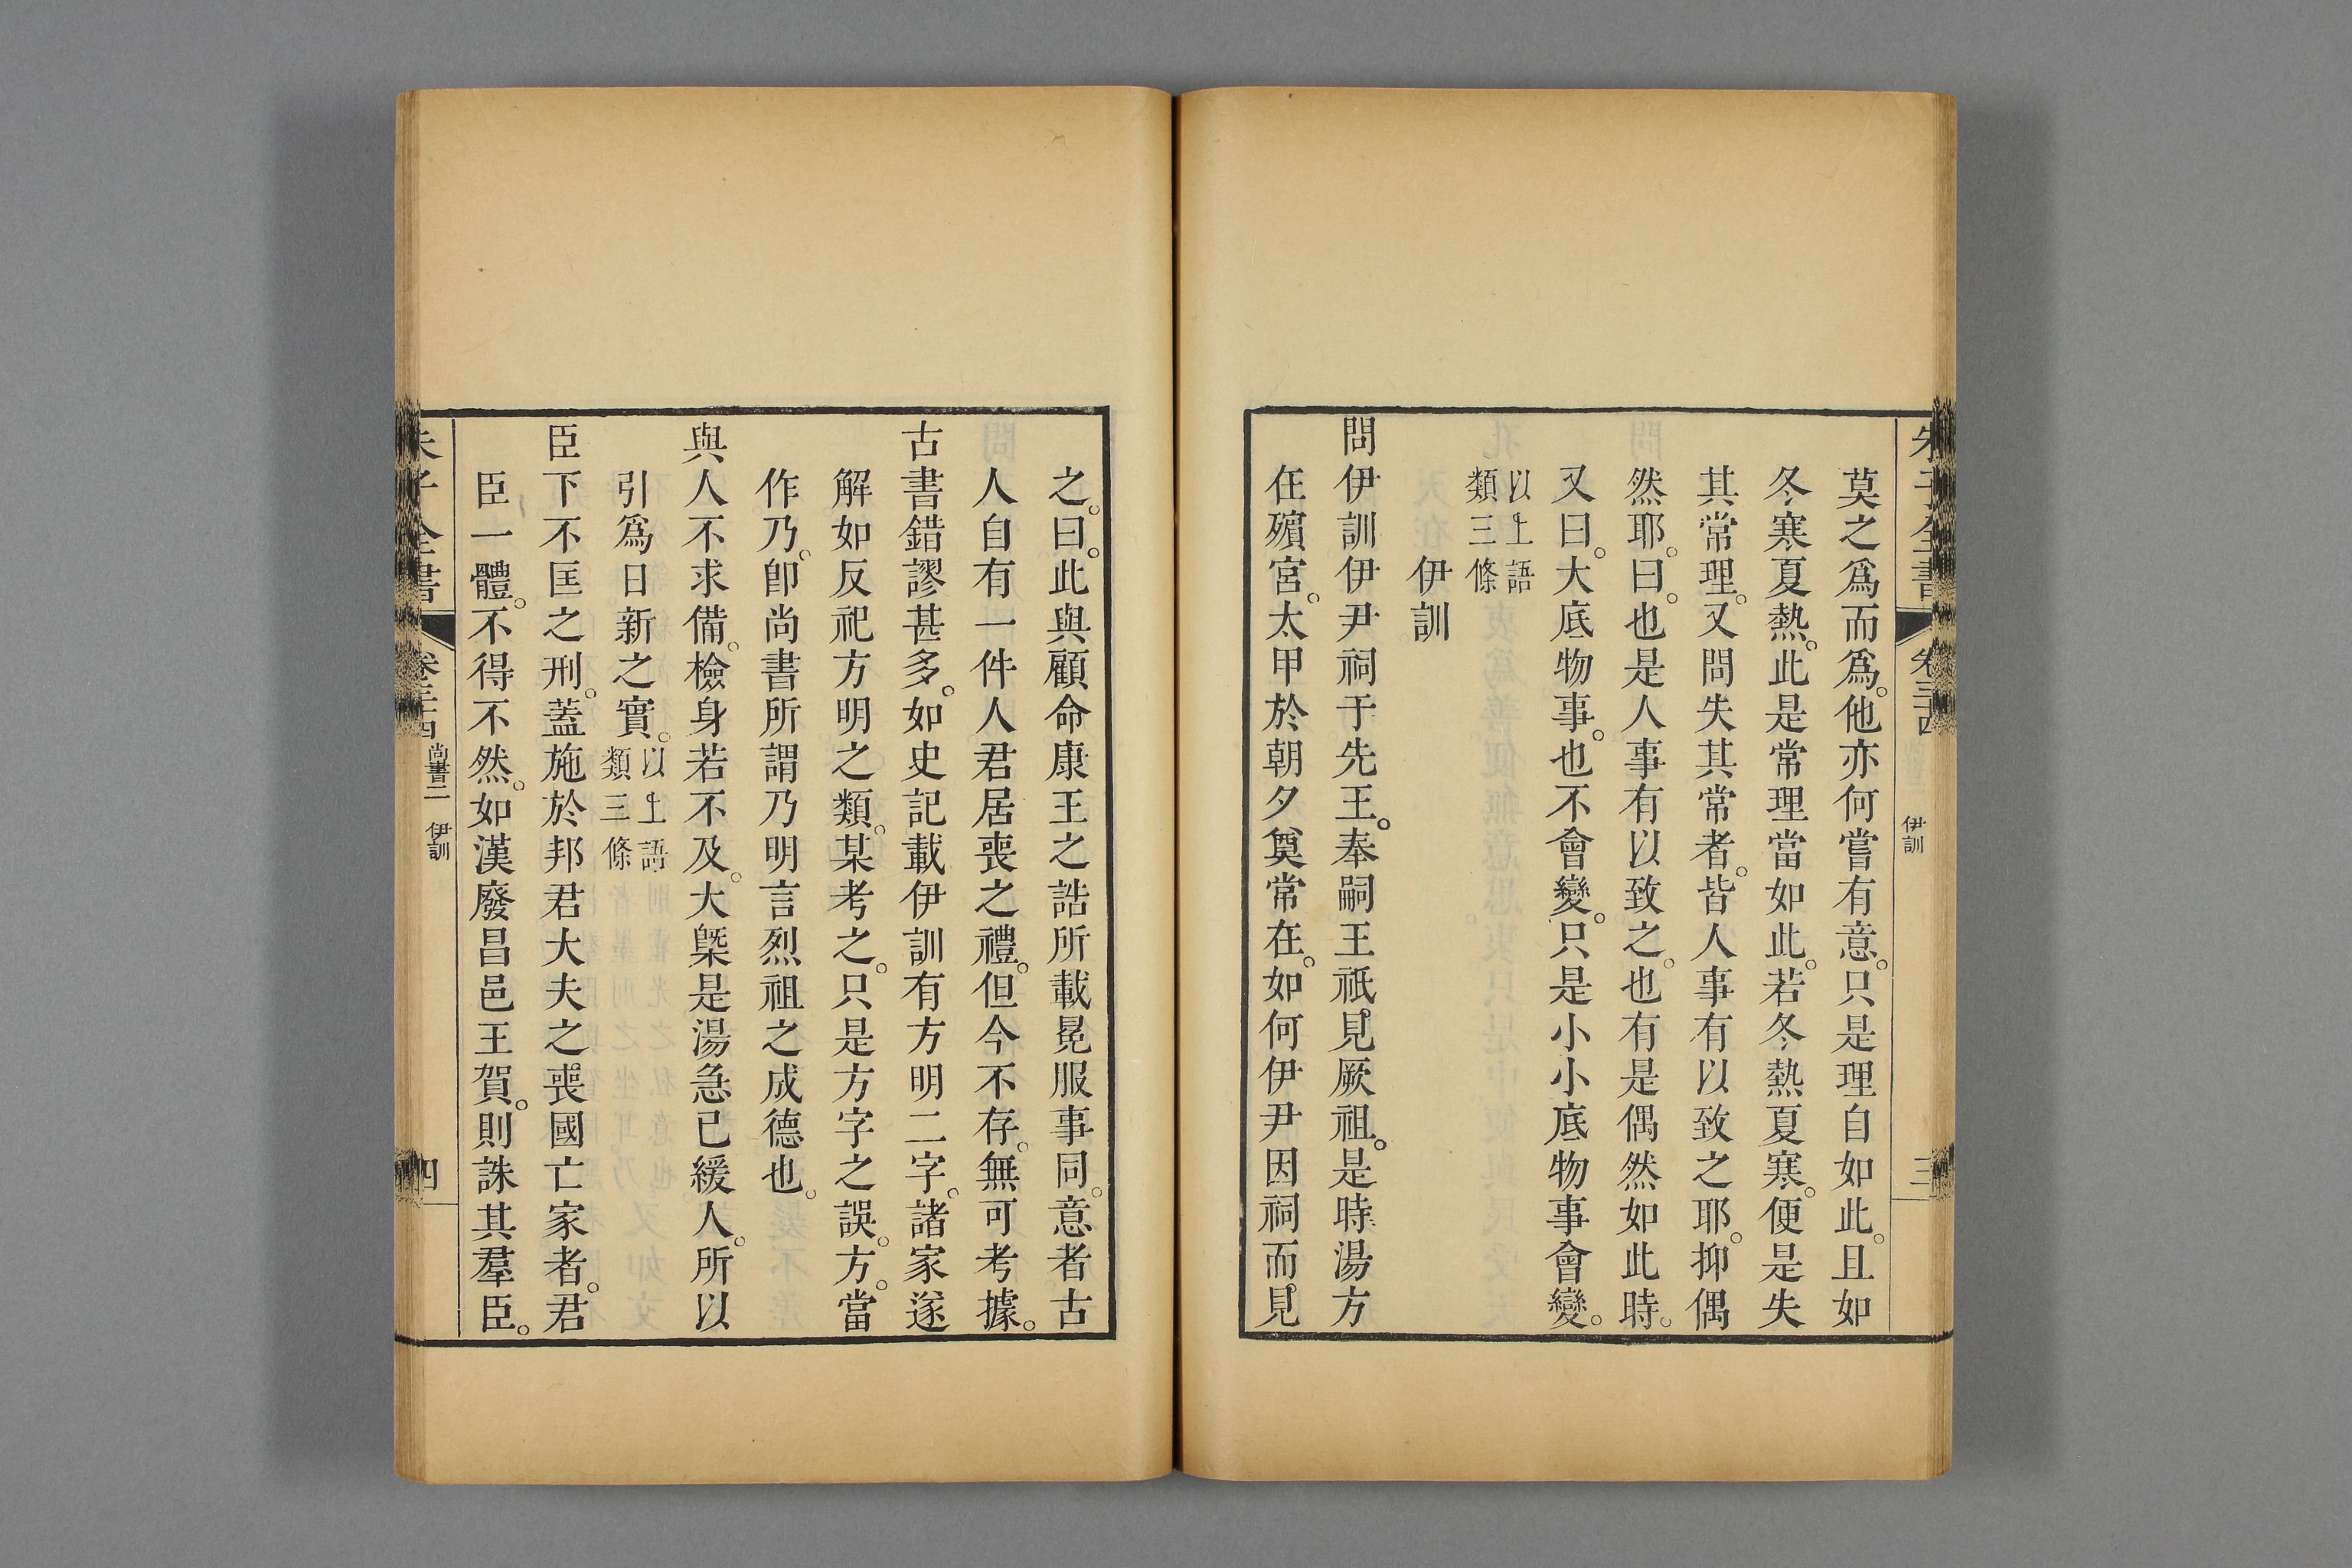 朱子全書 卷三十四 伊訓 三
莫之爲而爲。他亦何嘗有意。只是理自如此。且如
冬寒夏熱。此是常理當如此。若冬熱夏寒。便是失
其常理。又問失其常者。皆人事有以致之耶。抑偶
然耶。曰。也是人事有以致之。也有是偶然如此時。
又曰。大底物事。也不會變。只是小小底物事會變。
以上語
類三條
伊訓
問伊訓伊尹祠于先王。奉嗣王祇見厥祖。是時湯方
在殯宮。太甲於朝夕奠常在。如何伊尹因祠而見
之。曰。此與顧命康王之誥所載冕服事同。意者古
人自有一件人君居喪之禮。但今不存。無可考據。
古書錯謬甚多。如史記載伊訓有方明二字。諸家遂
解如反祀方明之類。某考之。只是方字之誤。方。當
作乃。卽尚書所謂乃明言烈祖之成德也。
與人不求備。檢身若不及。大槩是湯急已緩人。所以
引爲日新之實。以上語
類三條
臣下不匡之刑。蓋施於邦君大夫之喪國亡家者。君
臣一體。不得不然。如漢廢昌邑王賀。則誅其羣臣。
朱子全書 卷三十四 尚書二 伊訓 四